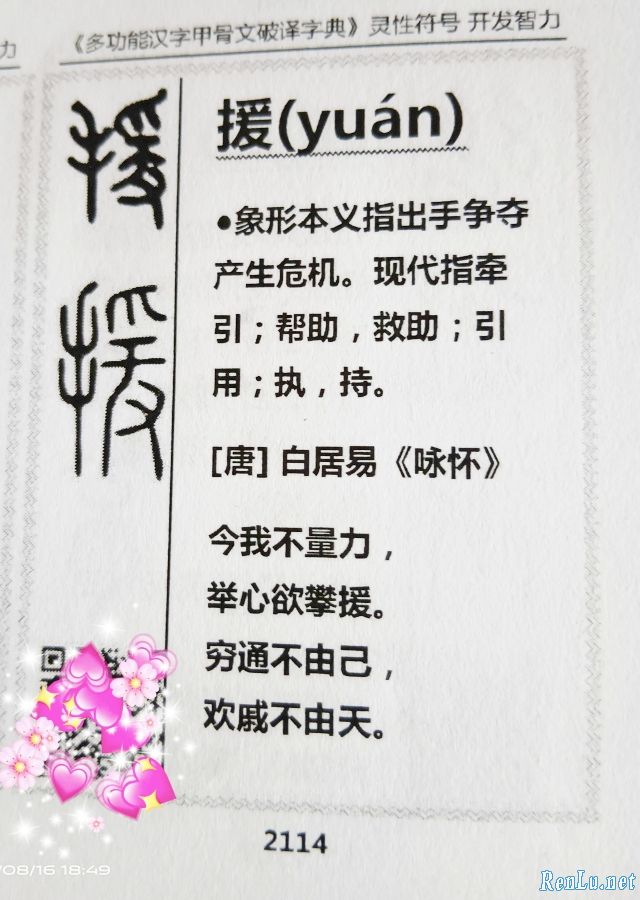 力
《多功能汉字甲骨文破译字典》灵性符号 开发智力
援
援
援(yuán)
●象形本义指出手争夺
产生危机。现代指牵
引；帮助，救助；引
用；执，持。
[唐] 白居易《咏怀》
今我不量力，
举心欲攀援。
穷通不由己，
欢戚不由天。
2114
/08/16 18:49
RenLu.net